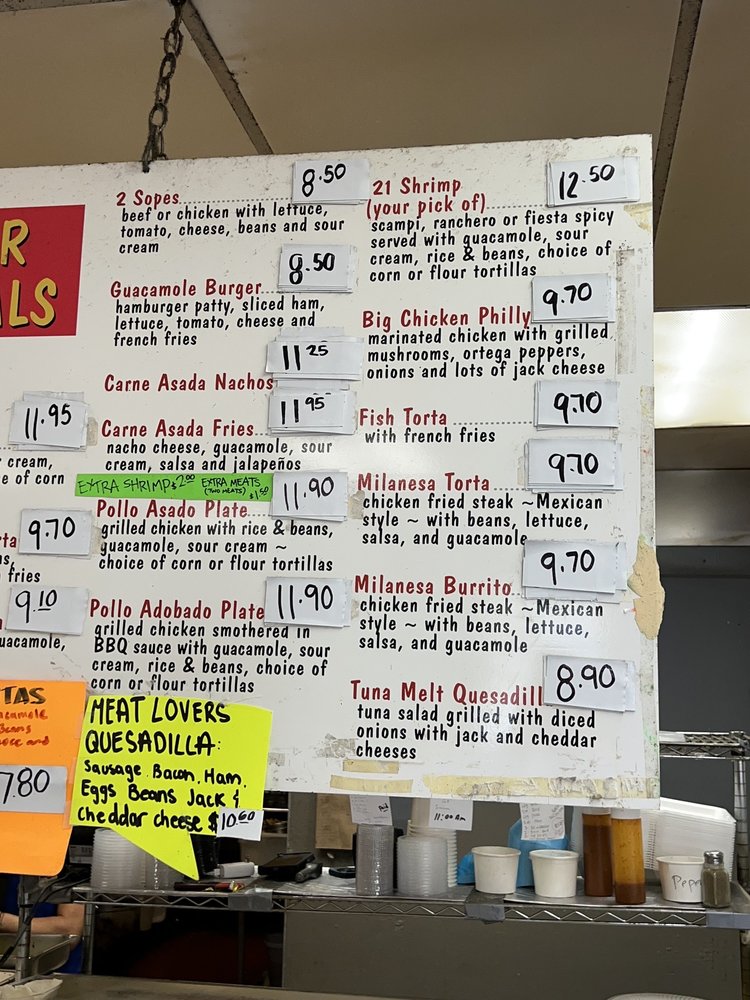 R
ALS
11.95
cream,
e of corn
9.70
rta
ns,
fries
9.10
uacamole,
TAS
7.80
2 Sopes 8.50
beef or chicken with lettuce,
tomato, cheese, beans and sour
cream
Guacamole Burger 8.50
hamburger patty, sliced ham,
lettuce, tomato, cheese and
french fries
Carne Asada Nachos 11.25
Carne Asada Fries 11.95
nacho cheese, guacamole, sour
cream, salsa and jalapeños
EXTRA SHRIMP $2.00 EXTRA MEATS
(TWO MEATS) $1.50
Pollo Asado Plate 11.90
grilled chicken with rice & beans,
guacamole, sour cream ~
choice of corn or flour tortillas
Pollo Adobado Plate 11.90
grilled chicken smothered in
BBQ sauce with guacamole, sour
cream, rice & beans, choice of
corn or flour tortillas
MEAT LOVERS
QUESADILLA:
Sausage. Bacon. Ham.
Eggs Beans Jack &
cheddar cheese $10.60
21 Shrimp 12.50
(your pick of)
scampi, ranchero or fiesta spicy
served with guacamole, sour
cream, rice & beans, choice of
corn or flour tortillas
Big Chicken Philly 9.70
marinated chicken with grilled
mushrooms, ortega peppers,
onions and lots of jack cheese
Fish Torta 9.70
with french fries
Milanesa Torta 9.70
chicken fried steak ~Mexican
style ~ with beans, lettuce,
salsa, and guacamole
Milanesa Burrito 9.70
chicken fried steak ~Mexican
style ~ with beans, lettuce,
salsa, and guacamole
Tuna Melt Quesadill 8.90
tuna salad grilled with diced
onions with jack and cheddar
cheeses
11:00am
Pepe